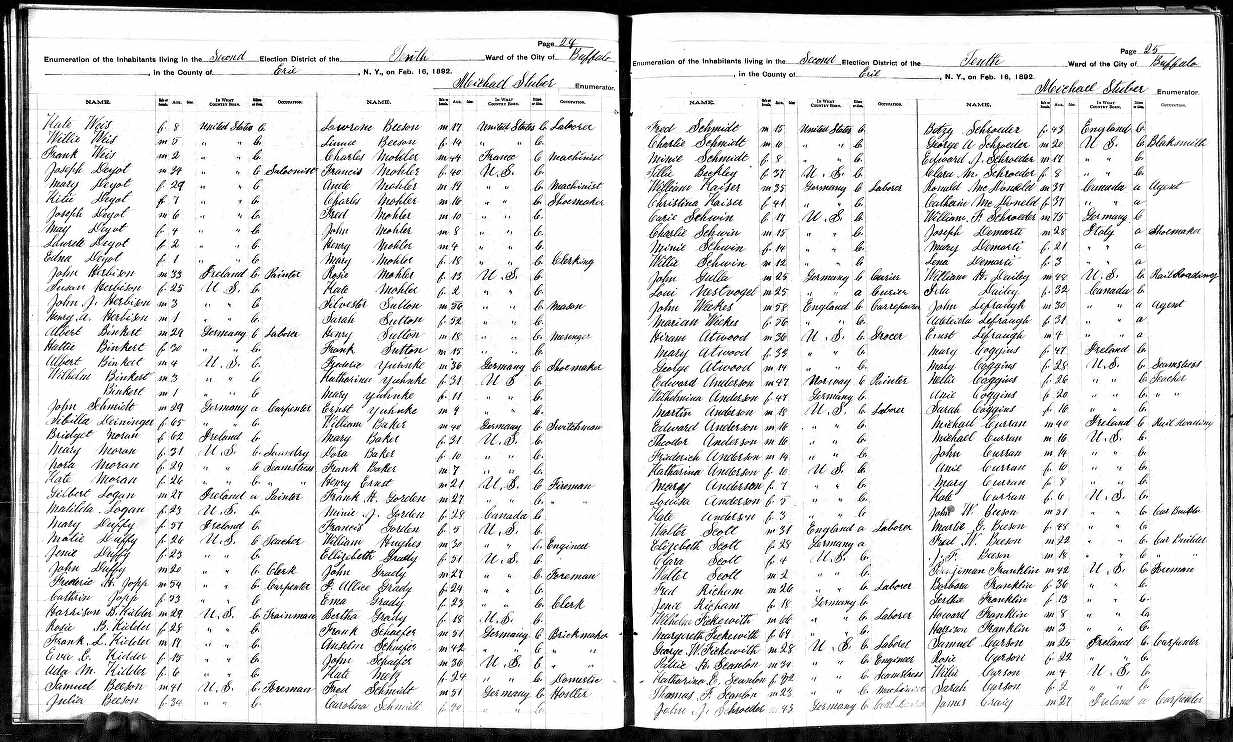 Page 24
Enumeration of the Inhabitants living in the Second Election District of the Tenth Ward of the City of Buffalo
, in the County of Erie , N. Y., on Feb. 16, 1892.
Michael Stuber Enumerator.
NAME. Sex AGE. IN WHAT COUNTRY BORN. OCCUPATION.
Kate Weis f 8 United States C
Willie Weis m 5 " " C
Frank Weis m 2 " " C
Joseph Deyot m 34 " " C Saloonist
Mary Deyot f 29 " " C
Katie Deyot f 7 " " C
Joseph Deyot m 6 " " C
May Deyot f 4 " " C
Deyot f 2 " " C
Edna Deyot f 1 " " C
John Herbison m 33 Ireland C Painter
Susan Herbison f 25 U. S. C
John J. Herbison m 3 " " C
Henry A. Herbison m 1 " " C
Albert Binkert m 29 Germany C Laborer
Hattie Binkert f 30 " " C
Albert Binkert m 4 U. S. C
Wilhelm Binkert m 3 " " C
Binkert m 1 " " C
John Schmidt m 29 Germany a Carpenter
Sibilla Deininger f 65 " " C
Bridget Moran f 62 Ireland C
Mary Moran f 31 U. S. C Laundry
Nora Moran f 29 " " C Seamstress
Kate Moran f 26 " " C " "
Gilbert Logan m 27 Ireland a Painter
Matilda Logan f 23 U. S. C
Mary Duffy f 57 Ireland C
Matie Duffy f 26 U. S. C Teacher
Jenie Duffy f 23 " " C
John Duffy m 20 " " C Clerk
Frederic H. Jopp m 34 " " C Carpenter
Cathrin Jopp f 33 " " C
Harrison B. Kidder m 29 U. S. C Trainman
Rosie B. Kidder f 28 " " C
Frank L. Kidder m 19 " " C
Eva E. Kidder f 15 " " C
Ada M. Kidder f 6 " " C
Samuel Beeson m 41 U. S. C Foreman
Julia Beeson f 34 " " C
NAME. Sex AGE. IN WHAT COUNTRY BORN. OCCUPATION.
Lawrence Beeson m 17 United States C Laborer
Linnie Beeson f 14 " " C
Charles Mohler m 44 France C Machinist
Francis Mohler f 40 U. S. C
Mohler m 19 " " C Machinist
Charles Mohler m 16 " " C Shoemaker
Fred Mohler m 10 " " C
John Mohler m 8 " " C
Henry Mohler m 4 " " C
Mary Mohler f 18 " " C Clerking
Rosie Mohler f 13 U. S. C
Kate Mohler f 2 " " C
Silvester Sutton m 56 " " C Mason
Sarah Sutton f 52 " " C
Henry Sutton m 18 " " C Mesenger
Frank Sutton m 15 " " C
Frederic Yuhnke m 36 Germany C Shoemaker
Katharina Yuhnke f 31 U. S. C
Mary Yuhnke f 11 " " C
Ernst Yuhnke m 9 " " C
William Baker m 40 Germany C Switchman
Mary Baker f 31 U. S. C
Dora Baker f 10 " " C
Frank Baker m 7 " " C
Henry Ernst m 21 U. S. C Fireman
Frank H. Gorden m 27 " " C " "
Minie J. Gorden f 28 Canada C
Francis Gorden f 5 U. S. C
William Hughes m 30 " " C Engineer
Ellizebeth Grady f 51 U. S. C
John Grady m 27 " " C Foreman
F. Allice Grady f 24 " " C
Ema Grady f 23 " " C Clerk
Bertha Grady f 18 U. S. C
Frank Schaefer m 51 Germany C Brickmaker
Anselm Schaefer m 42 " " C " "
John Schaefer m 36 U. S. C " "
Kate Metz f 24 " " C Domestic
Fred Schmidt m 51 Germany C Hostler
Carolina Schmidt f 50 " " C
Page 25
Enumeration of the Inhabitants living in the Second Election District of the Tenth Ward of the City of Buffalo
, in the County of Erie , N. Y., on Feb. 16, 1892.
Michael Stuber Enumerator.
NAME. Sex AGE. IN WHAT COUNTRY BORN. OCCUPATION.
Fred Schmidt m 15 United States C
Charlie Schmidt m 10 " " C
Minie Schmidt f 8 " " C
Tillie Beckley f 37 U. S. C
William Kaiser m 35 Germany C Laborer
Christina Kaiser f 41 " " C
Carie Schwin f 17 U. S. C
Charlie Schwin m 15 " " C
Minie Schwin f 14 " " C
Willie Schwin m 12 " " C
John m 25 Germany C Currier
Loui Nestvogel m 25 " " a Currier
John Weekes m 58 England C Carrepairer
Marian Weekes f 56 " " C
Hiram Atwood m 36 U. S. C Grocer
Mary Atwood f 33 " " C
George Atwood m 14 " " C
Edward Anderson m 47 Norway C Painter
Wilhelmina Anderson f 47 Germany C
Martin Anderson m 18 U. S. C Laborer
Edward Anderson m 16 " " C
Theodor Anderson m 16 " " C
Friederich Anderson m 14 " " C
Katharina Anderson f 10 U. S. C
Mary Anderson f 7 " " C
Louisa Anderson f 5 " " C
Kate Anderson f 3 " " C
Walter Scott m 31 England a Laborer
Elizebeth Scott f 23 Germany a
Clara Scott f 4 U. S. C
Walter Scott m 2 " " C
Fred Richam m 26 " " C Laborer
Jenie Richam f 18 Germany C
Wilhelm Fickewith m 66 " " C Laborer
Margareth Fickewith f 64 " " C
George W. Fickewith m 28 U. S. C Laborer
B. Scanlon m 34 " " C Engineer
Katharina E. Scanlon f 32 " " C Seamstress
Thomas F. Scanlon m 23 " " C Machinist
John J. Schroeder m 43 Germany C
NAME. Sex AGE. IN WHAT COUNTRY BORN. OCCUPATION.
Betzy Schroeder f 43 England C
George A. Schroeder m 20 U. S. C Blaksmith
Edward J. Schroeder m 17 " " C
Clara M. Schroeder f 8 " " C
Ronald Mc Donald m 37 Canada a Agent
Catherine Mc Donald f 37 " " a
William F. Schroeder m 75 Germany C
Joseph Demarti m 28 Italy a Shoemaker
Mary Demarti f 21 " " a
Lena Demarti f 3 " " a
William H. Dailey m 44 U. S. C Rail Roading
Dailey f 32 Canada C
John Lefraugh m 30 " " a Agent
Lefraugh f 31 " " a
Ernst Lefraugh m 4 " " a
Mary Coggins f 47 Ireland C
Mary Coggins f 28 U. S. C Seamstress
Nellie Coggins f 26 " " C Teacher
Anie Coggins f 20 " " C " "
Sarah Coggins f 16 " " C
Michael Curran m 40 Ireland C Rail Roading
Michael Curran m 16 U. S. C
John Curran m 14 " " C
Anie Curran f 10 " " C
Mary Curran f 8 " " C
Kate Curran f 6 U. S. C
John W. Beeson m 51 " " C Car Builder
E. Beeson f 48 " " C
Fred W. Beeson m 22 " " C Car Builder
J. F. Beeson m 18 " " C " "
Franklin m 42 U. S. C Foreman
Barbara Franklin f 36 " " C
Gertie Franklin f 13 " " C
Howard Franklin m 8 " " C
Harrison Franklin m 3 " " C
Samuel Carson m 25 Ireland C Carpenter
Rosie Carson f 22 " " C
Willie Carson m 4 U. S. C
Sarah Carson f 2 " " C
James Craig m 27 Ireland a Carpenter